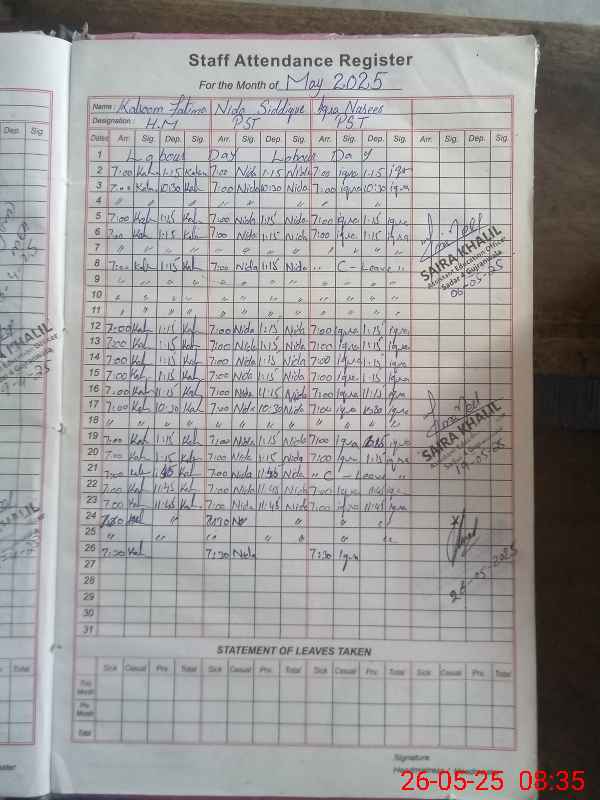 Staff Attendance Register
For the Month of May 2025
Name : Kalsoom Fatima Nida Siddique Iqra Naseer
Designation : H.M PST PST
Dates Arr. Sig. Dep. Sig. Arr. Sig. Dep. Sig. Arr. Sig. Dep. Sig. Arr. Sig. Dep. Sig.
1 Labour Day Labour Day
2 7:00 Kal 1:15 Kal 7:00 Nida 1:15 Nida 7:00 iqra 1:15 iqra
3 7:00 Kal 10:30 Kal 7:00 Nida 10:30 Nida 7:00 iqra 10:30 iqra
4 " " " " " " " " " " "
5 7:00 Kal 1:15 Kal 7:00 Nida 1:15 Nida 7:00 iqra 1:15 iqra
6 7:00 Kal 1:15 Kal 7:00 Nida 1:15 Nida 7:00 iqra 1:15 iqra
7 " " " " " " " " " " "
8 7:00 Kal 1:15 Kal 7:00 Nida 1:15 Nida " C - Leave "
9 " " " " " " " " " " "
10 " " " " " " " " " " "
11 " " " " " " " " " " "
12 7:00 Kal 1:15 Kal 7:00 Nida 1:15 Nida 7:00 Iqra 1:15 Iqra
13 7:00 Kal 1:15 Kal 7:00 Nida 1:15 Nida 7:00 Iqra 1:15 Iqra
14 7:00 Kal 1:15 Kal 7:00 Nida 1:15 Nida 7:00 Iqra 1:15 iqra
15 7:00 Kal 1:15 Kal 7:00 Nida 1:15 Nida 7:00 Iqra 1:15 iqra
16 7:00 Kal 11:15 Kal 7:00 Nida 11:15 Nida 7:00 Iqra 11:15 iqra
17 7:00 Kal 10:30 Kal 7:00 Nida 10:30 Nida 7:00 iqra 10:30 iqra
18 " " " " " " " " " " "
19 7:00 Kal 1:15 Kal 7:00 Nida 1:15 Nida 7:00 Iqra 1:15 iqra
20 7:00 Kal 1:15 Kal 7:00 Nida 1:15 Nida 7:00 Iqra 1:15 iqra
21 7:00 Kal 11:45 Kal 7:00 Nida 11:45 Nida " C - Leave "
22 7:00 Kal 11:45 Kal 7:00 Nida 11:45 Nida 7:00 iqra 11:45 iqra
23 7:00 Kal 11:45 Kal 7:00 Nida 11:45 Nida 7:00 iqra 11:45 iqra
24 " " " "
25 " " " " " "
26 7:30 Kal 7:30 Nida 7:30 Iqra
27
28
29
30
31
SAIRA KHALIL
Assistant Education Officer
06-05-25
SAIRA KHALIL
19-05-25
-05-2025
STATEMENT OF LEAVES TAKEN
Sick Casual Prv. Total Sick Casual Prv. Total Sick Casual Prv. Total Sick Casual Prv. Total
This Month
Pre Month
Total
Signature
Dep. Sig.
SAIRA KHALIL
KHALIL
Prv. Total
26-05-25 08:35